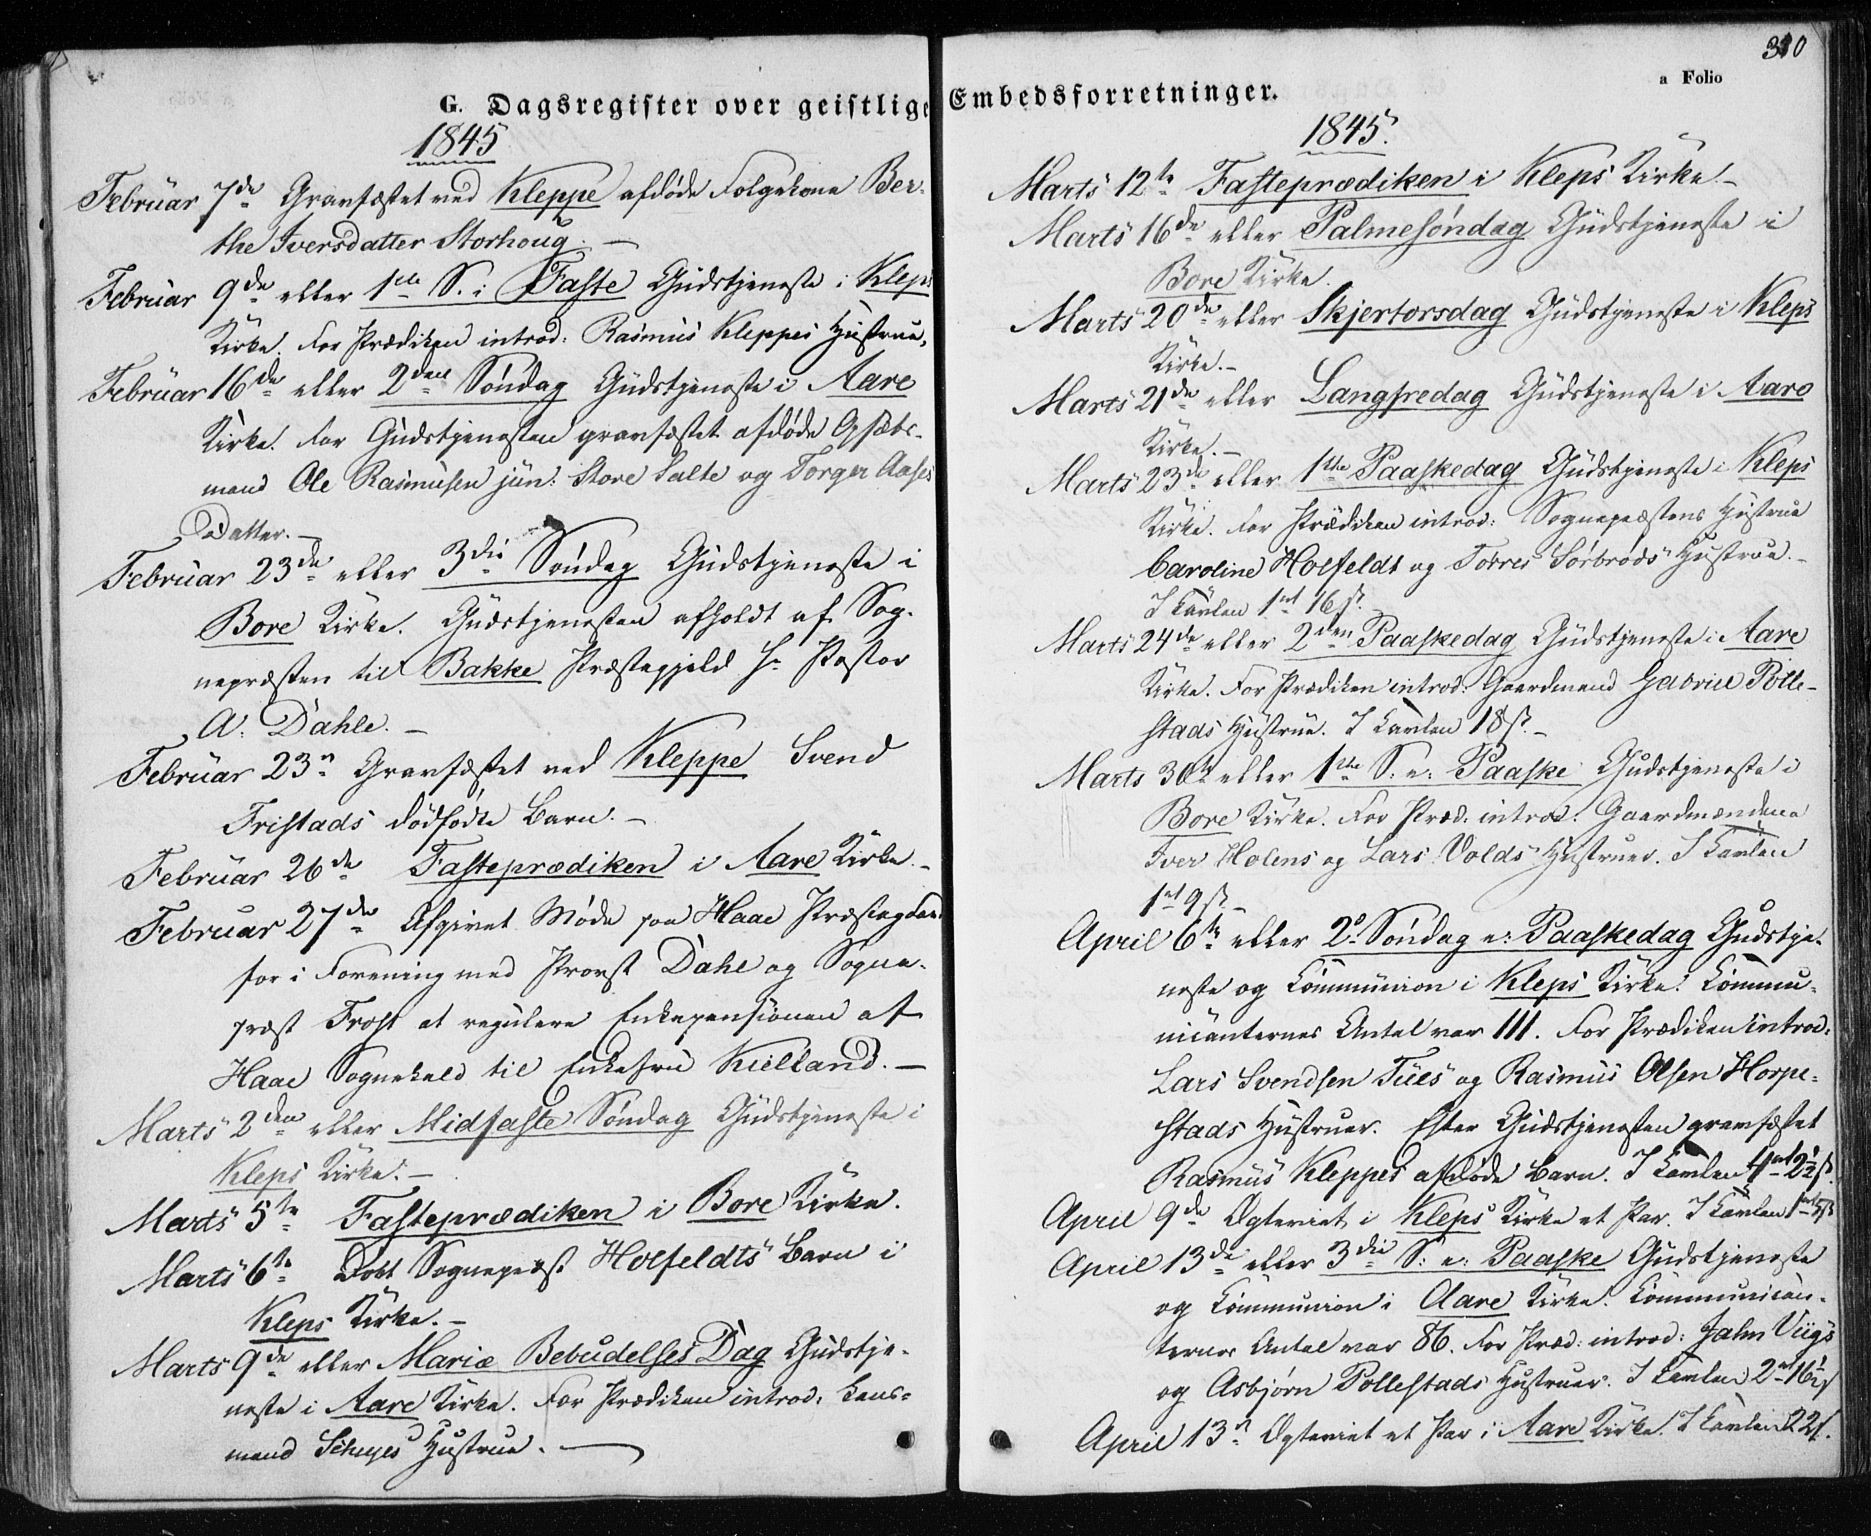 G. Dagsregister over geistlige
1845
Februar 7de Gravfæstet ved Kleppe afdøde Folgekone Ber-
the Iversdatter Storhoug. –
Februar 9de eller 1ste S. i Faste Gudstjeneste i Kleps
Kirke. For Prædiken introd: Rasmus Kleppes Hustrue.
Februar 16de eller 2den Søndag Gudstjeneste i Aare
Kirke. For Gudstjenesten gravfæstet afdøde Opsæbs-
mand Ole Rasmusen jün: Store Salte og Torger Aases
Datter. –
Februar 23de eller 3die Søndag Gudstjeneste i
Bore Kirke. Gudstjenesten afholdt af Sog-
nepræsten til Bakke Præstegjeld Hr Pastor
A. Dahle. –
Februar 23de Gravfæstet ved Kleppe Svend
Fristads dødfødte Barn. –
Februar 26de Fasteprædiken i Aare Kirke. –
Februar 27de Afgivet Møde paa Haae Præstegaard
for i Forening med Provst Dahl og Sogne-
præst Frost at regulere Enkepensionen af
Haae Sognekald til Enkefru Kielland. –
Marts 2den eller Midfaste Søndag Gudstjeneste i
Kleps Kirke. –
Marts 5te Fasteprædiken i Bore Kirke.
Marts 6te Døbt Sognepræst Holfeldts Barn i
Kleps Kirke. –
Marts 9de eller Mariæ Bebudelses Dag Gudstje-
neste i Aare Kirke. For Prædiken introd: Lens-
mand Schuyes Hustrue. –
310
a Folio
Embedsforretninger.
1845.
Marts 12te Fasteprædiken i Kleps Kirke. –
Marts 16de eller Palmesøndag Gudstjeneste i
Bore Kirke.
Marts 20de eller Skjertorsdag Gudstjeneste i Kleps
Kirke. –
Marts 21de eller Langfredag Gudstjeneste i Aare
Kirke. –
Marts 23de eller 1ste Paaskedag Gudstjeneste i Kleps
Kirke. For Prædiken introd: Sognepræstens Hustrue
Caroline Holfeldt og Tørres Sørbrøds Hustrue. –
I Tavlen 1 mk 16 ß.
Marts 24de eller 2den Paaskedag Gudstjeneste i Aare
Kirke. For Prædiken introd: Gaardmand Gabriel Polle-
stads Hustrue. I Tavlen 18 ß. –
Marts 30te eller 1ste S: e: Paaske Gudstjeneste i
Bore Kirke. For Præd. introd: Gaardmændene
Iver Holens og Lars Volds Hustruer. I Tavlen
1 mk 9 ß. –
April 6te eller 2den Søndag e: Paaskedag Gudstje-
neste og Communion i Kleps Kirke. Commu-
nicanternes Antal var 111. For Prædiken introd:
Lars Svendsen Tües og Rasmus Olsen Horpe-
stads Hustruer. Efter Gudstjenesten gravfæstet
Rasmus Kleppes afdøde Barn. I Tavlen 4 mk 2½ ß.
April 9de Ægteviet i Kleps Kirke et Par. I Tavlen 1 mk 5 ß
April 13de eller 3die S: e: Paaske Gudstjeneste
og Communion i Aare Kirke. Communican-
ternes Antal var 86. For Præd: introd: Jahn Viigs
og Asbjørn Pollestads Hustruer. I Tavlen 2 mk 16½ ß
April 13de Ægteviet et Par i Aare Kirke. I Tavlen 22 ß.